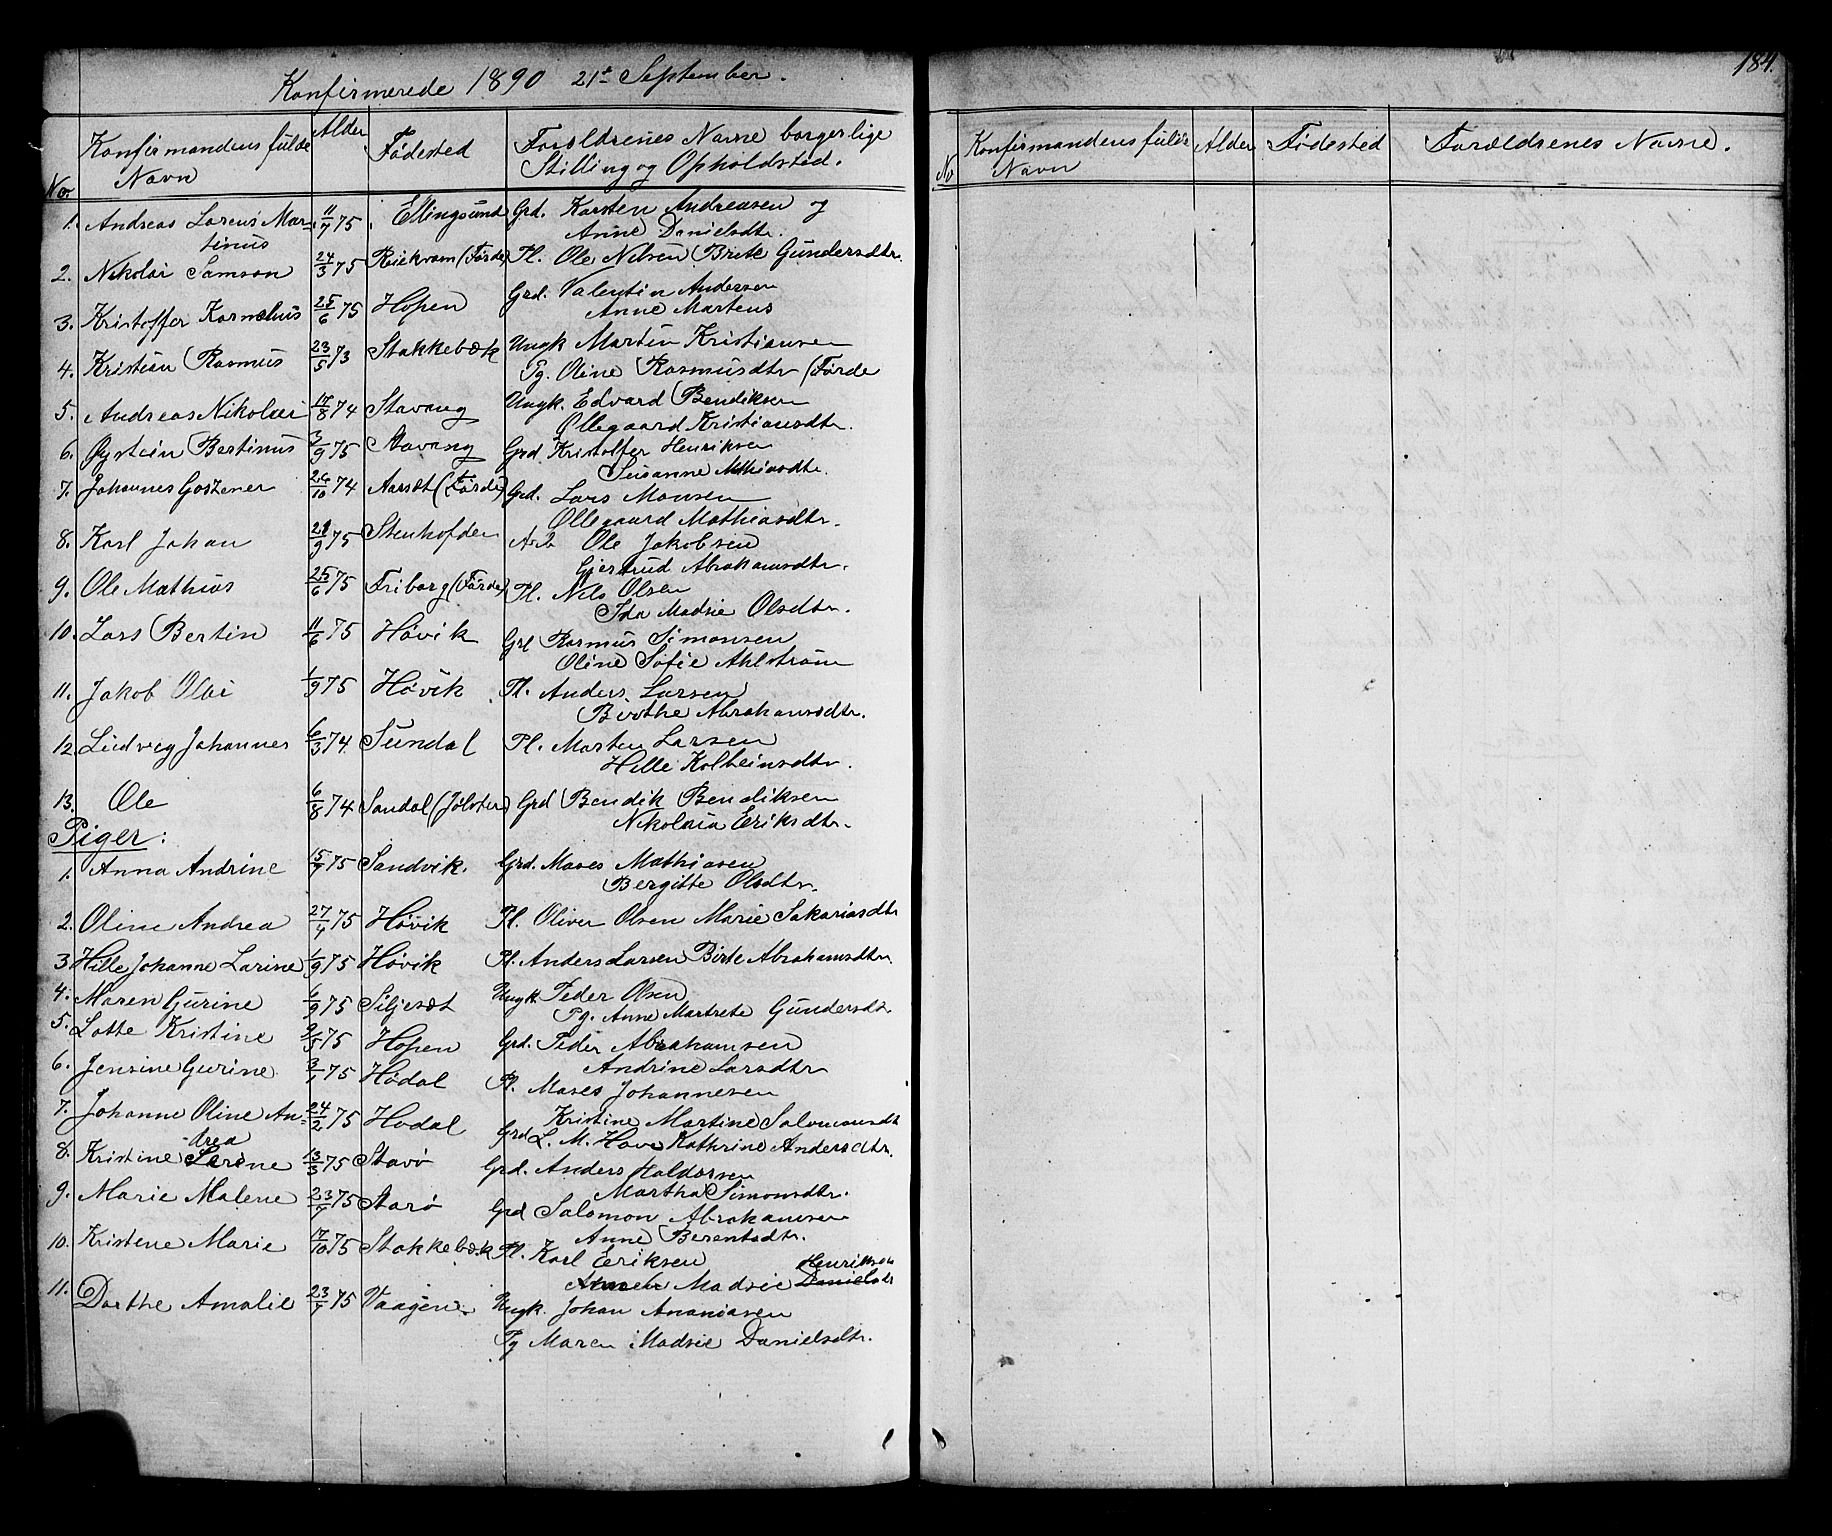 Konfirmerede 1890 21st September.
No. Konfirmandens fulde Navn Alder Fødested Forældrenes Navne borgerlige Stilling og Opholdsted.
1. Andreas Lorens Mar- 11/7 75 Ellingsund Grd. Karsten Andreasen og
tinus Anne Danielsdtr.
2. Nikolai Samson 24/3 75 (Førde) Pl. Ole Nilsen Brite Gundersdtr.
3. Kristoffer Kornelius 25/6 75 Hopen Grd. Valentin Andersen
Anne Martens
4. Kristian Rasmus 23/5 73 Stakkebæk Ungk Martin Kristiansen
Pg. Oline Rasmusdtr (Førde
5. Andreas Nikolai /8 74 Stavang Ungk. Edvard Bendiksen
Ollegaard Kristiansdtr.
6. Øystein Bertinus 3/9 75 Stavang Grd Kristoffer Henriksen
Susanne Mthiasdtr.
7. Johannes Gostener 26/10 74 Aarsæt (Førde) Grd. Lars Monsen
Ollegaard Mathiasdtr.
8. Karl Johan 21/9 75 Stenhofden Arb Ole Jakobsen
Gjertrud Abrahamsdtr.
9. Ole Mathias 25/6 75 Friborg (Førde) Pl. Nils Olsen
Ida Madsie Olsdtr.
10. Lars Bertin 11/6 75 Høvik Grd Rasmus Simonsen
Oline Sofie Ahlstrøm
11. Jakob Olai 1/9 75 Høvik Pl. Anders Larsen
Birthe Abrahamsdtr.
12. Ludvig Johannes 6/3 74. Sundal Pl. Marten Larsen
Hille Kolbeinsdtr.
13. Ole 6/8 74 Sandal (Jølster) Grd Bendik Bendiksen
Nikolaia Eriksdtr.
Piger:
1. Anna Andrine 15/7 75 Sandvik. Grd. Moses Mathiasen
Bergitte Olsdtr.
2. Oline Andrea 27/4 75 Høvik Pl. Oliver Olsen Marie Sakariasdtr
3 Hille Johanne Larine 1/9 75 Høvik Pl. Anders Larsen Birte Abrahamsdtr
4. Maren Gurine 6/9 75 Siljesæt Ungk Peder Olsen
Pg. Anne Martrete Gundersdtr
5. Lotte Kristine 9/5 75 Hopen Grd. Peder Abrahamsen
Andrine Larsdtr
6. Jensine Gurine 3/1 75 Hødal Pl. Moses Johannesen
Kristine Martine Salomonsdtr
7. Johanne Oline An- 24/2 75 Hodal Grd L. M. Hove Kathrine Andersdtr.
drea
8. Kristine Serine 13/3 75 Stavø Grd. Anders Haldorsen
Martha Simonsdtr.
9. Marie Malene 23/7 75 Stavø Grd Salomon Abrahamsen
Anne Berentsdtr.
10. Kristene Marie 17/10 75 Stakkebæk Pl. Karl Eriksen
Madsie Henriksen Danielsdtr
11. Dorthe Amalie 23/7 75 Vaagene. Ungk. Johan Ananiasen
Pg Maren Madsie Danielsdtr.
184.
No Konfirmandens fulde Navn Alder Fødested Forældrenes Navne.